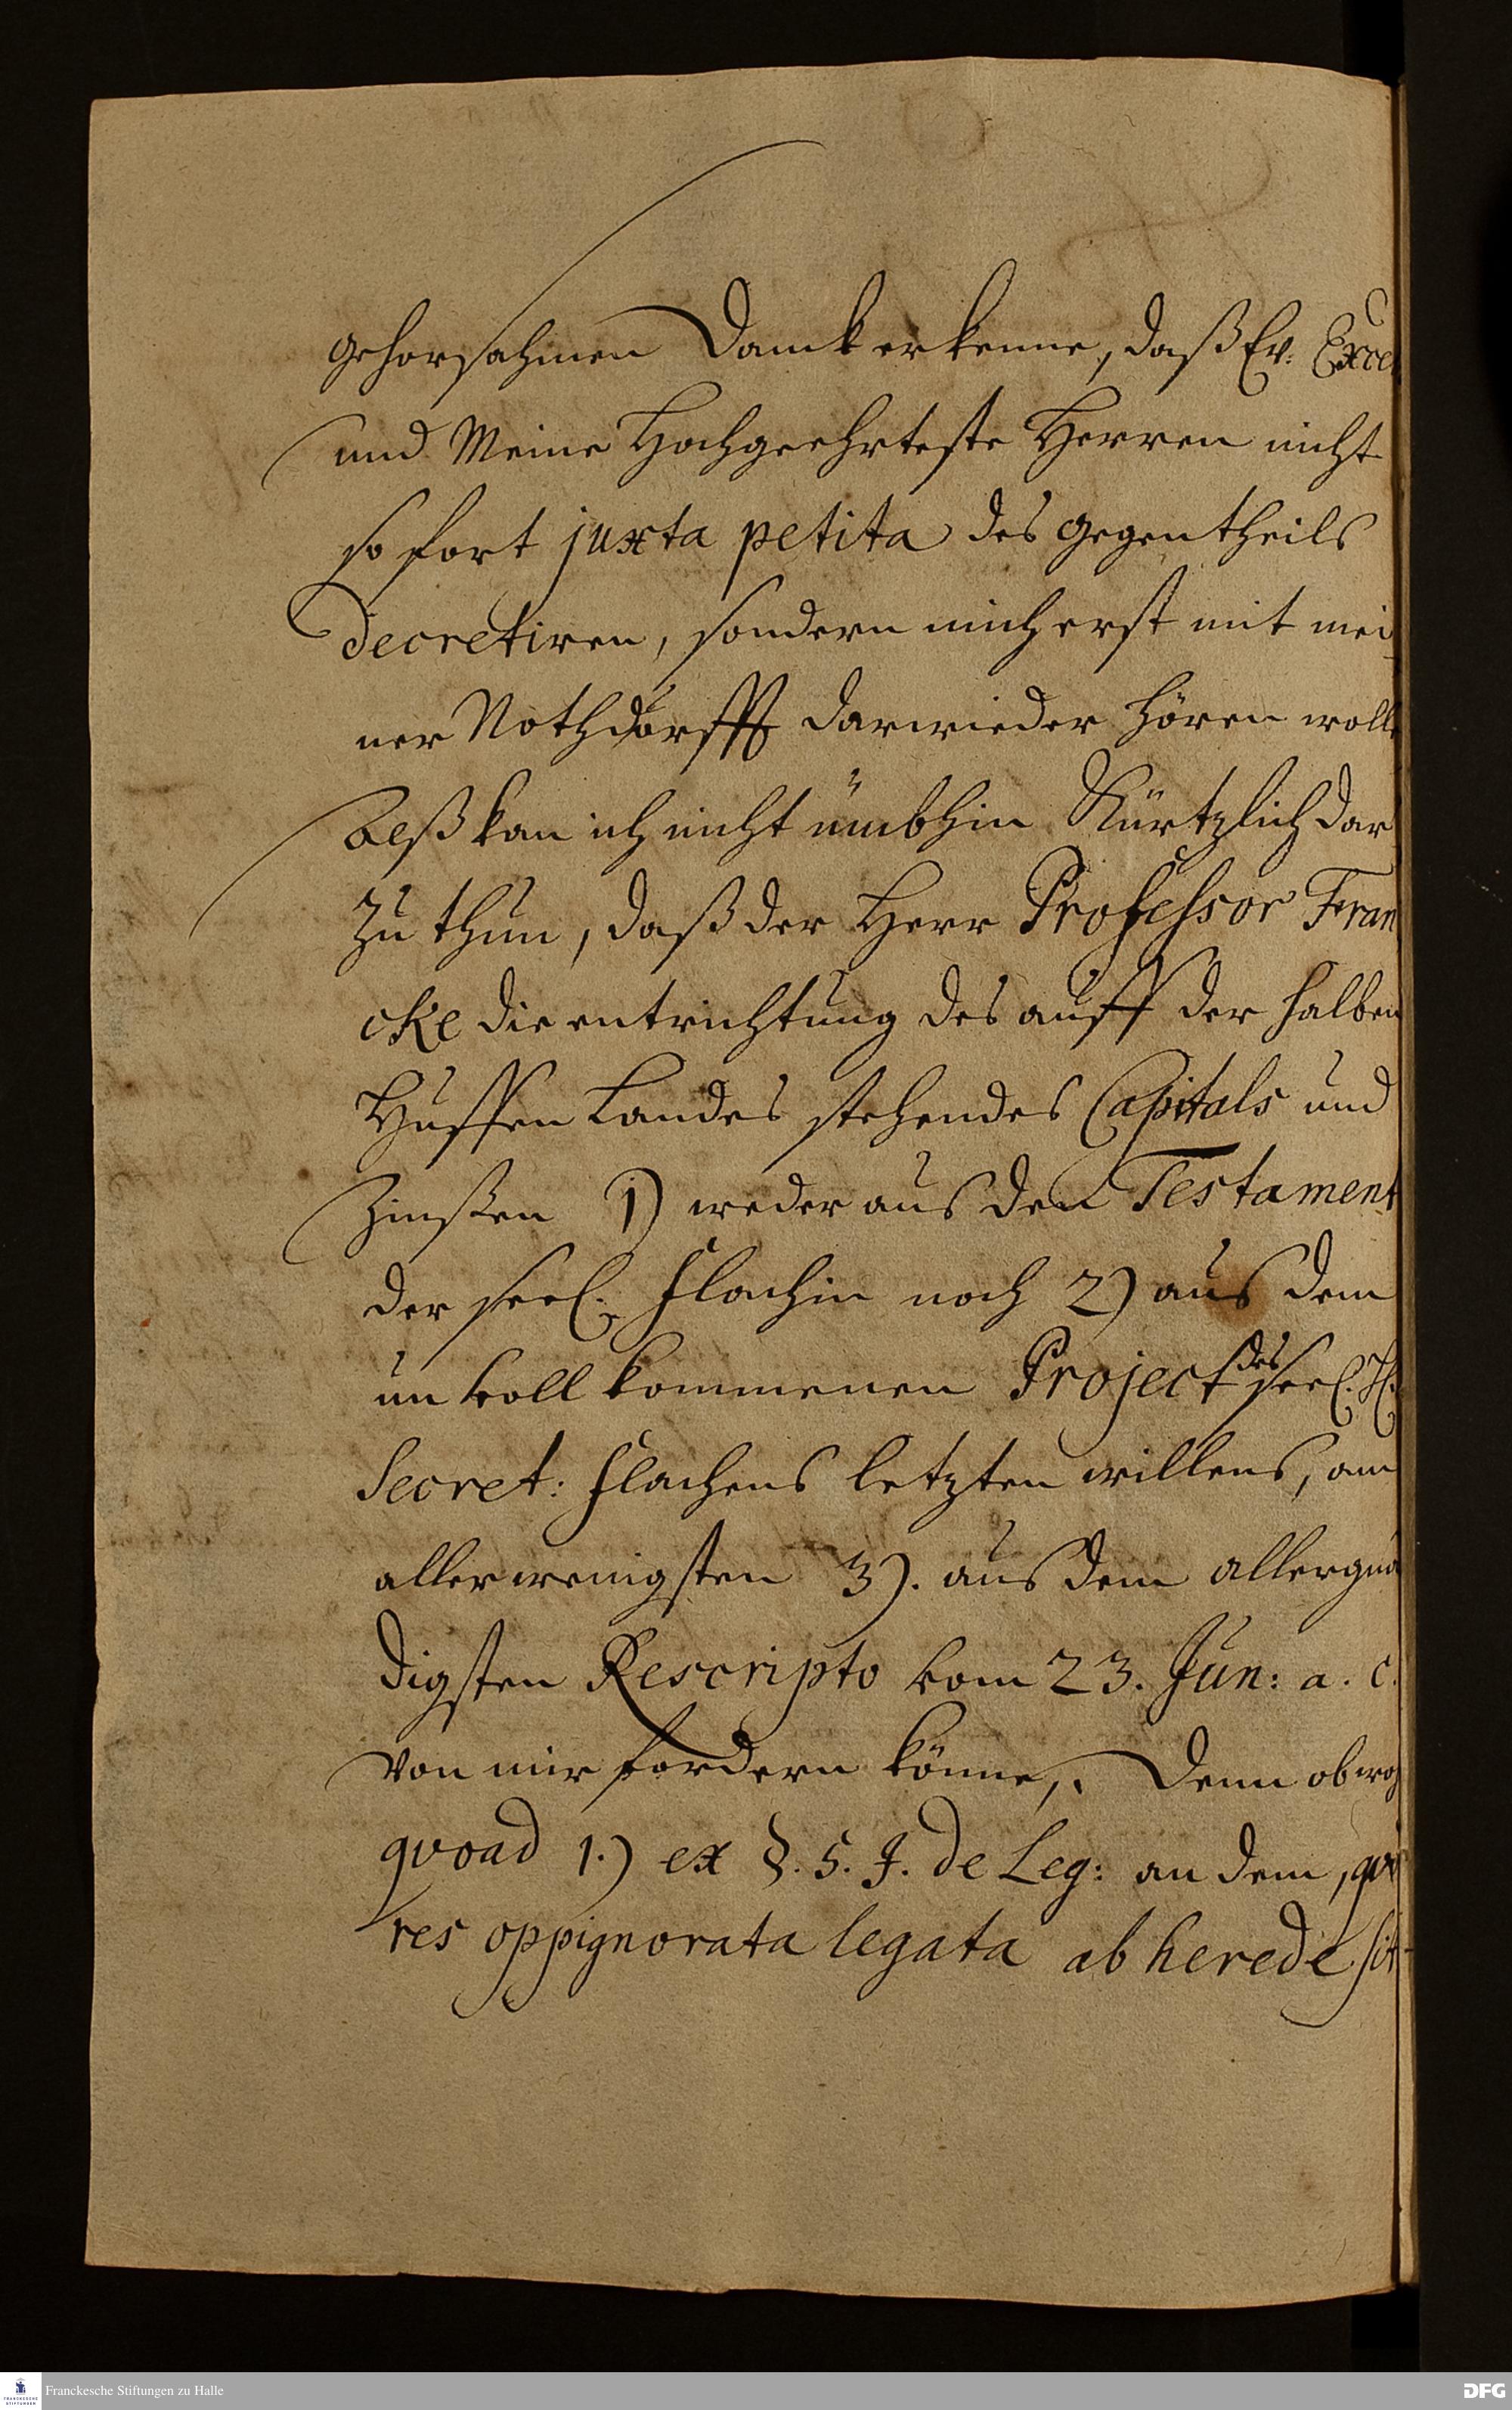 gehorsahmen Danck erkenne, daß Ew: Excel
und Meine Hochgeehrteste Herren nicht
so fort juxta petita des gegentheils
decretiren, sondern mich erst mit mei
ner Nothdurfft darwieder hören wolle
alß kan ich nicht ümbhin Kürtzlich dar
zu thun, daß der Herr Professor Fran
cke die entrichtung des auff der halben
Huffen Landes stehendes Capitals und
Zinßen 1) weder aus den Testament
der seel. Flachin noch 2) aus dem
unvollkommenen Project des seel. H.
Secret: Flachens letzten willens, am
allerwenigsten 3). aus dem allergnä
digsten Rescripto vom 23. Jun: a. c.
von mir fordern könne, Denn ob woh
quoad 1.) ex §. 5. J. de Leg: an dem, qv
res oppignorata legata ab herede sit
Franckesche Stiftungen zu Halle
DFG